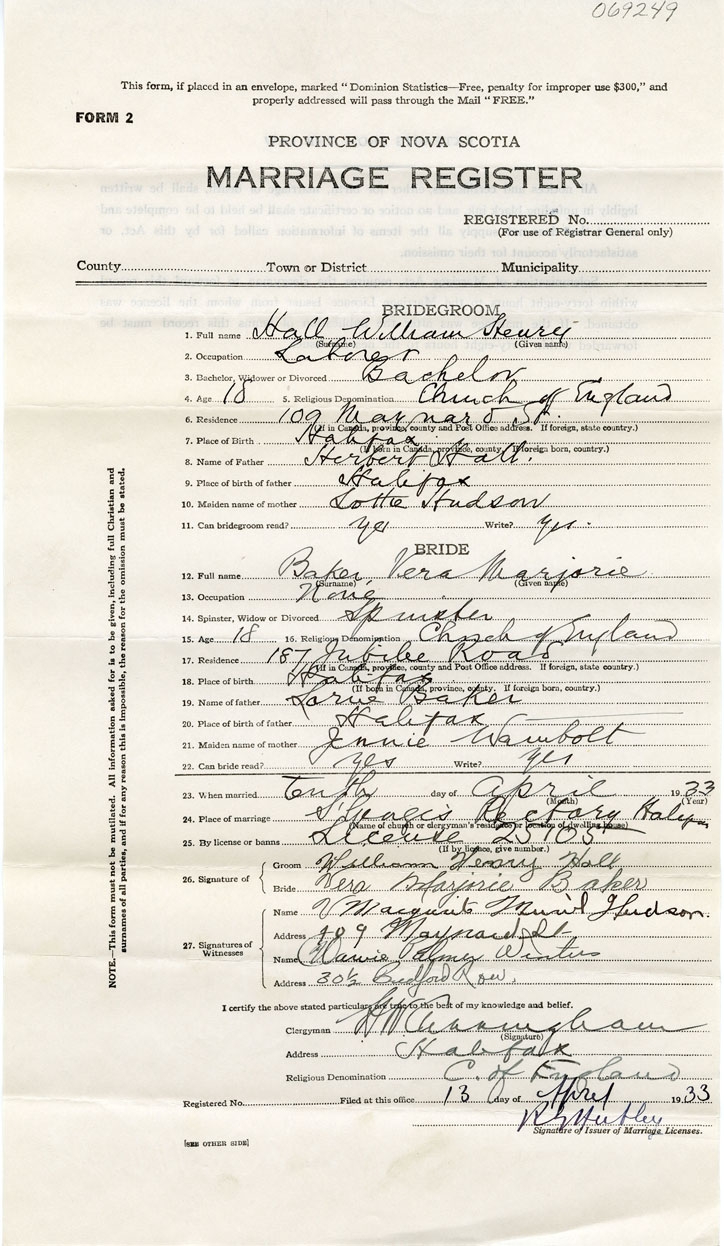 069249
This form, if placed in an envelope, marked "Dominion Statistics—Free, penalty for improper use $300," and
properly addressed will pass through the Mail "FREE."
FORM 2
PROVINCE OF NOVA SCOTIA
MARRIAGE REGISTER
REGISTERED No.
(For use of Registrar General only)
County Town or District Municipality
BRIDEGROOM
1. Full name Hall William Henry
(Surname) (Given name)
2. Occupation Laborer
3. Bachelor, Widower or Divorced Bachelor
4. Age 18 5. Religious Denomination Church of England
6. Residence 109 Maynard St.
(If in Canada, province, county and Post Office address. If foreign, state country.)
7. Place of Birth Halifax
(If born in Canada, province, county. If foreign born, country.)
8. Name of Father Herbert Hall.
9. Place of birth of father Halifax
10. Maiden name of mother Lottie Hudson
11. Can bridegroom read? yes Write? yes.
BRIDE
12. Full name Baker, Vera Marjorie
(Surname) (Given name)
13. Occupation None
14. Spinster, Widow or Divorced Spinster
15. Age 18 16. Religious Denomination Church of England
17. Residence 187 Jubilee Road
(If in Canada, province, county and Post Office address. If foreign, state country.)
18. Place of birth Halifax
(If born in Canada, province, county. If foreign born, country.)
19. Name of father Lorne Baker
20. Place of birth of father Halifax
21. Maiden name of mother Jennie Wambolt
22. Can bride read? yes Write? yes
23. When married Tenth day of April 1933
(Month) (Year)
24. Place of marriage Rectory Halifax
(Name of church or clergyman's residence or location of dwelling house)
25. By license or banns License
(If by licence, give number.)
26. Signature of
Groom William Henry Hall
Bride Vera Marjorie Baker
27. Signatures of Witnesses
Name Hudson.
Address 109 Maynard St
Name Palmer Winters
Address 30½ Bedford Row.
I certify the above stated particulars are true to the best of my knowledge and belief.
Clergyman Cunningham
(Signature)
Address Halifax
Religious Denomination C. of England
Registered No. Filed at this office 13 day of April 1933
Signature of Issuer of Marriage Licenses.
[SEE OTHER SIDE]
NOTE.—This form must not be mutilated. All information asked for is to be given, including full Christian and
surnames of all parties, and if for any reason this is impossible, the reason for the omission must be stated.